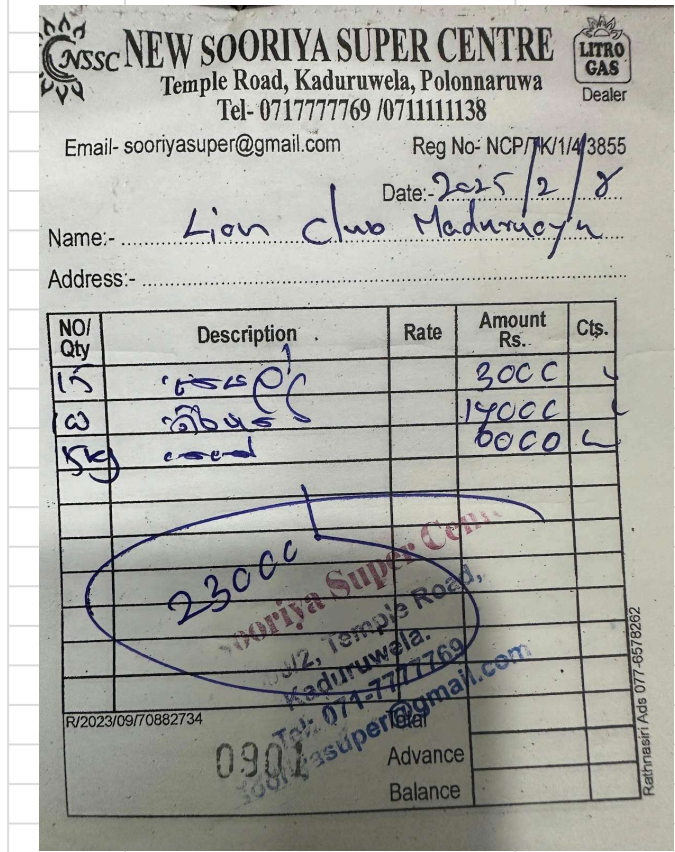 NSSC NEW SOORIYA SUPER CENTRE
LITRO GAS
Dealer
Temple Road, Kaduruwela, Polonnaruwa
Tel- 0717777769 /0711111138
Email- sooriyasuper@gmail.com Reg No- NCP/TK/1/4/3855
Date:- 2025/2/8
Name:- Lion Club
Address:-
NO/Qty Description Rate Amount Rs. Cts.
15 3000
10 14000
5kg 6000
23000
Sooriya Super
Temple Road,
Kaduruwela.
Tel: 071-7777769
sooriyasuper@gmail.com
R/2023/09/70882734 Total
0901 Advance
Balance
Rathnasiri Ads 077-6578262